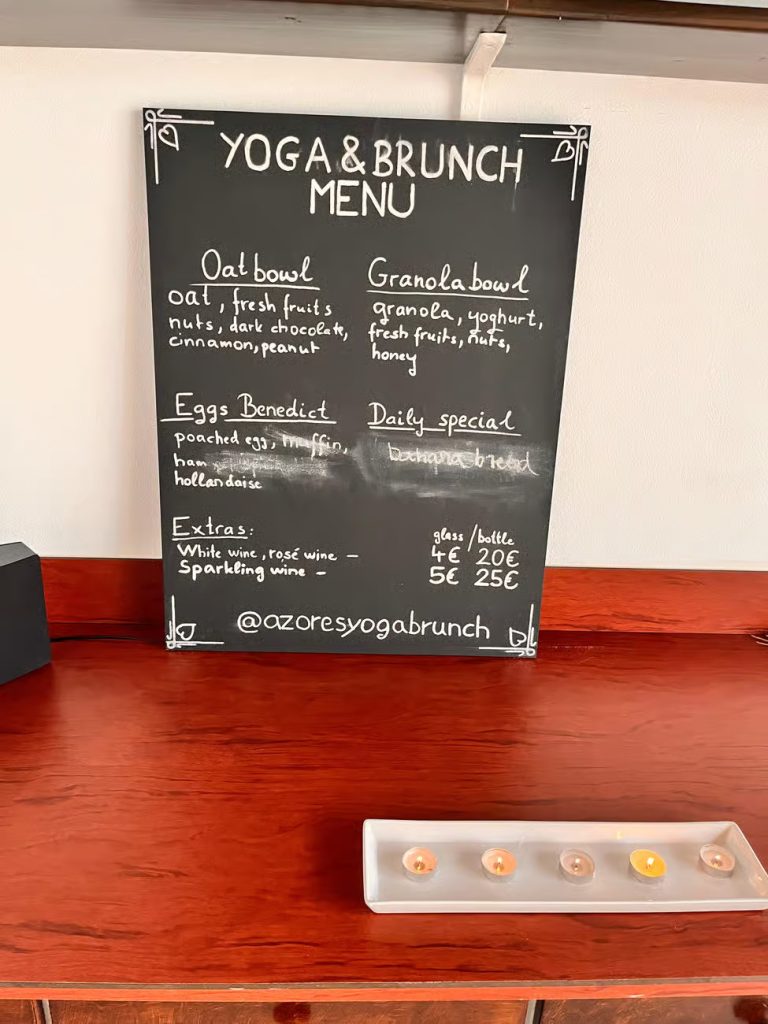 YOGA & BRUNCH
MENU
Oat bowl
oat, fresh fruits
nuts, dark chocolate,
cinnamon, peanut
Granola bowl
granola, yoghurt,
fresh fruits, nuts,
honey
Eggs Benedict
poached egg, muffin,
ham
hollandaise
Daily special
banana bread
Extras:
glass / bottle
White wine, rosé wine – 4€ 20€
Sparkling wine – 5€ 25€
@azoresyogabrunch